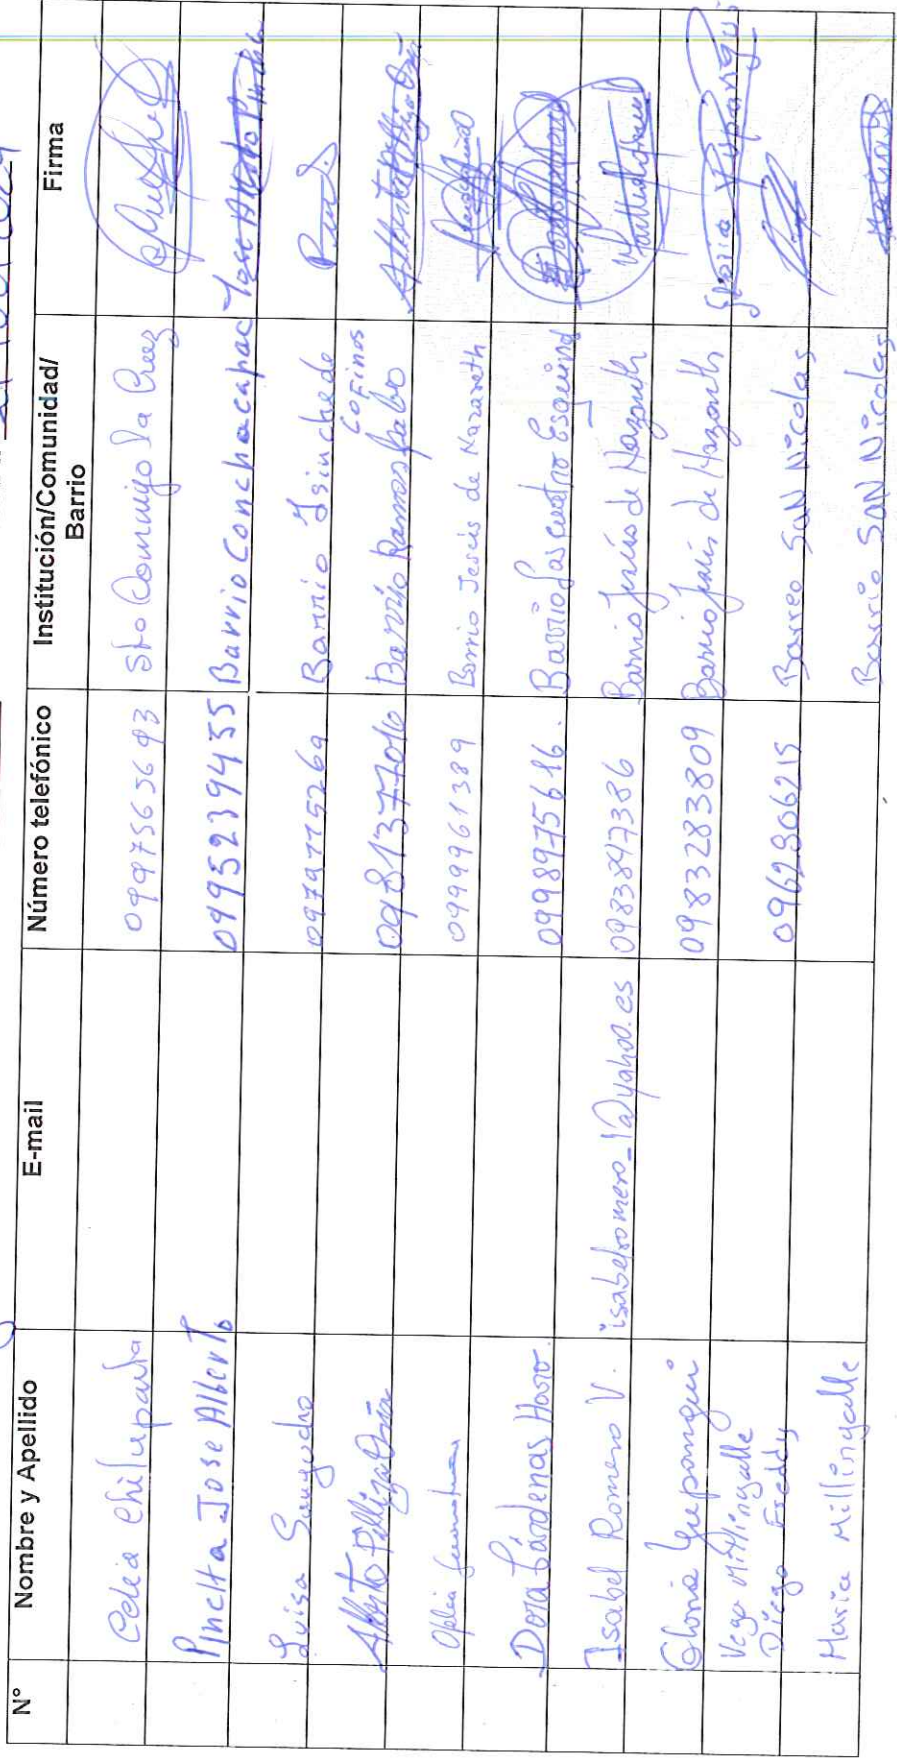 N° Nombre y Apellido E-mail Número telefónico Institución/Comunidad/
Barrio Firma
Celia Chilupanta 0997565693 Sto Domingo La Cruz
Pinclta Jose Alberto 0995239455 Barrio Conchacapac Jose Alberto
Luisa 0979775269 Barrio Isinche de
Cofines
Alberto 0981377016 Barrio Ramospabo Alberto
Ofelia 0999961389 Barrio Jesús de Nazareth
Dora Cárdenas Haro. 0998975616. Barrio Las cuatro Esquinas
Isabel Romero V. isabelromero_1@yahoo.es 0983847386 Barrio Jesús de Nazareth
Gloria Yupangui 0983283809 Barrio Jesús de Nazareth Gloria Yupangui
Vega Millingalle
Diego Freddy 0962306215 Barreo SAN Nicolas
Maria Millingalle Barrio SAN Nicolas